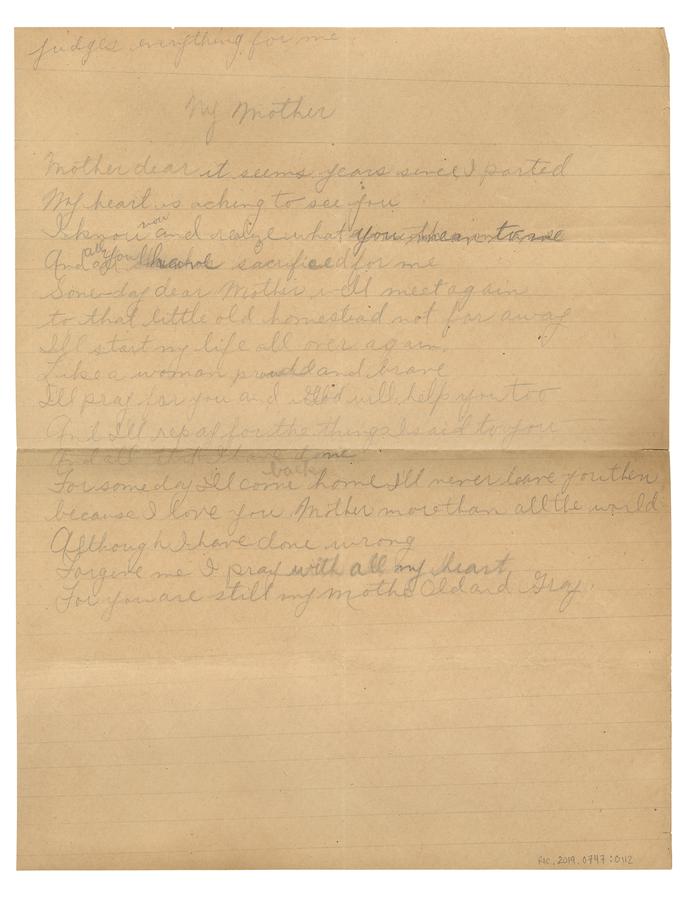 judges everything for me
My Mother
Mother dear it seems years since I parted
My heart is aching to see you
I know now and realize what you mean to me
And all you have sacrificed for me
Some day dear Mother will meet again
to that little old homestead not far away
I'll start my life all over again.
Like a woman proud and brave
I'll pray for you and God will help you too
And I'll repay for the things I said to you
And all that I have done
For some day I'll come back home I'll never leave you then
because I love you Mother more than all the world
Although I have done wrong
Forgive me I pray with all my heart
For you are still my Mother Old and Gray.
RIC.2019.0747:0112